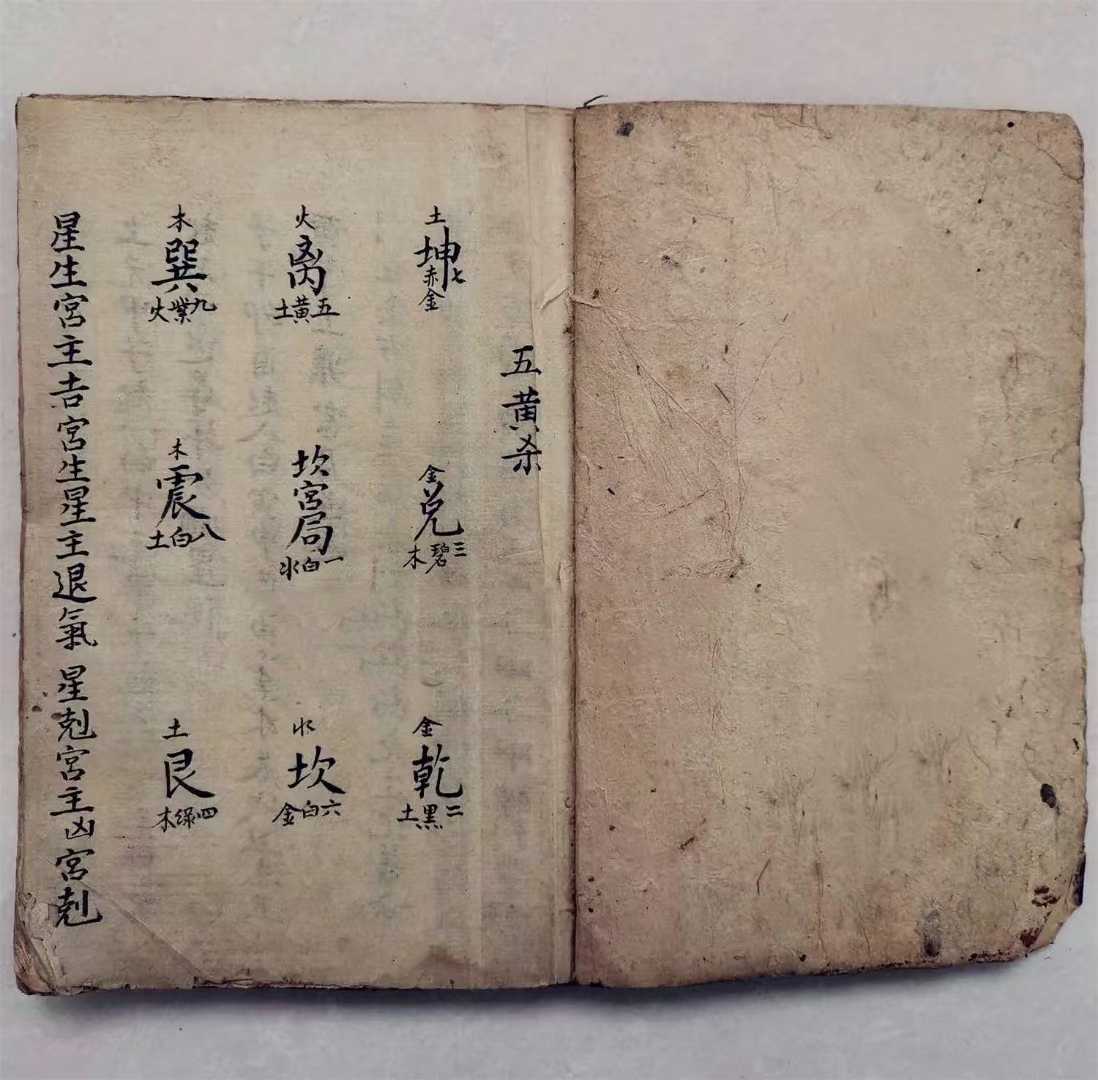 五黄杀
土
坤
七赤金
金
兑
三碧木
金
乾
二黑土
火
离
五黄土
坎宮局
一白水
水
坎
六白金
木
巽
九紫火
木
震
八白土
土
艮
四綠木
星生宮主吉宮生星主退氣星尅宮主凶宮尅